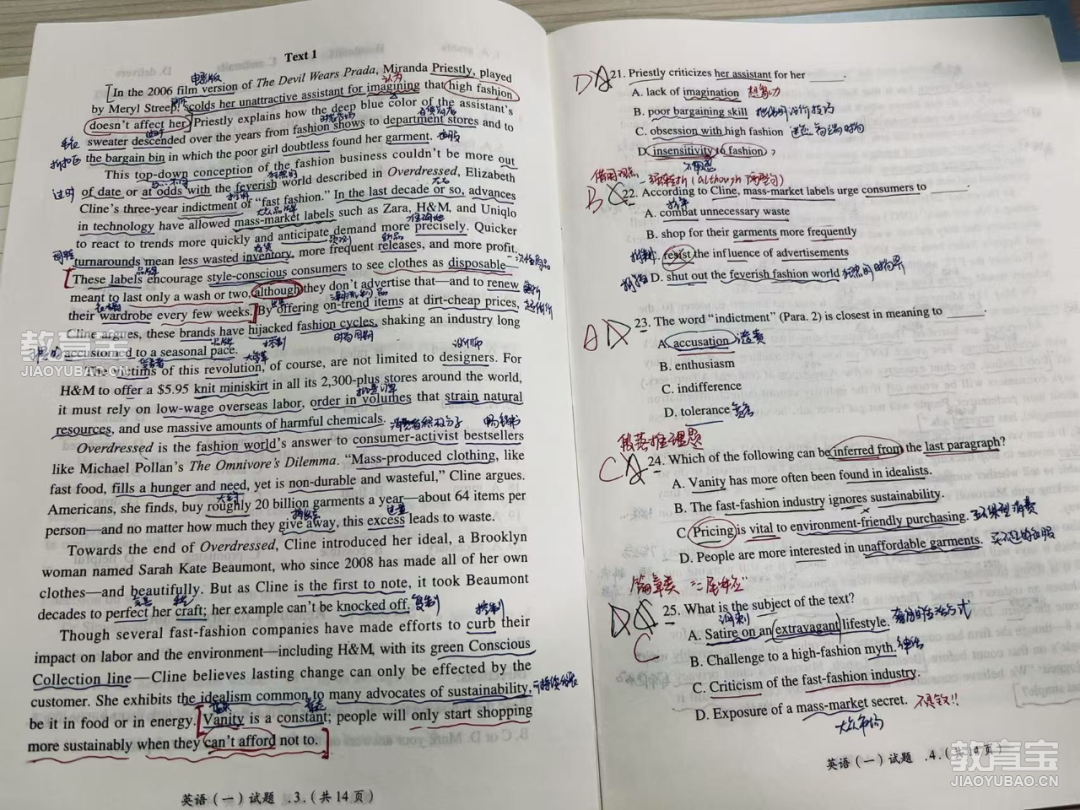 Text 1
In the 2006 film version of The Devil Wears Prada, Miranda Priestly, played
by Meryl Streep, scolds her unattractive assistant for imagining that high fashion
doesn't affect her. Priestly explains how the deep blue color of the assistant's
sweater descended over the years from fashion shows to department stores and to
the bargain bin in which the poor girl doubtless found her garment.
This top-down conception of the fashion business couldn't be more out
of date or at odds with the feverish world described in Overdressed, Elizabeth
Cline's three-year indictment of "fast fashion." In the last decade or so, advances
in technology have allowed mass-market labels such as Zara, H&M, and Uniqlo
to react to trends more quickly and anticipate demand more precisely. Quicker
turnarounds mean less wasted inventory, more frequent releases, and more profit.
These labels encourage style-conscious consumers to see clothes as disposable—
meant to last only a wash or two, although they don't advertise that—and to renew
their wardrobe every few weeks. By offering on-trend items at dirt-cheap prices,
Cline argues, these brands have hijacked fashion cycles, shaking an industry long
accustomed to a seasonal pace.
The victims of this revolution, of course, are not limited to designers. For
H&M to offer a $5.95 knit miniskirt in all its 2,300-plus stores around the world,
it must rely on low-wage overseas labor, order in volumes that strain natural
resources, and use massive amounts of harmful chemicals.
Overdressed is the fashion world's answer to consumer-activist bestsellers
like Michael Pollan's The Omnivore's Dilemma. "Mass-produced clothing, like
fast food, fills a hunger and need, yet is non-durable and wasteful," Cline argues.
Americans, she finds, buy roughly 20 billion garments a year—about 64 items per
person—and no matter how much they give away, this excess leads to waste.
Towards the end of Overdressed, Cline introduced her ideal, a Brooklyn
woman named Sarah Kate Beaumont, who since 2008 has made all of her own
clothes—and beautifully. But as Cline is the first to note, it took Beaumont
decades to perfect her craft; her example can't be knocked off.
Though several fast-fashion companies have made efforts to curb their
impact on labor and the environment—including H&M, with its green Conscious
Collection line—Cline believes lasting change can only be effected by the
customer. She exhibits the idealism common to many advocates of sustainability,
be it in food or in energy. Vanity is a constant; people will only start shopping
more sustainably when they can't afford not to.
英语(一)试题 .3.(共14页)
21. Priestly criticizes her assistant for her _____.
A. lack of imagination 想象力
B. poor bargaining skill
C. obsession with high fashion
D. insensitivity to fashion
22. According to Cline, mass-market labels urge consumers to _____.
A. combat unnecessary waste
B. shop for their garments more frequently
resist the influence of advertisements
D. shut out the feverish fashion world
23. The word "indictment" (Para. 2) is closest in meaning to _____.
A. accusation 谴责
B. enthusiasm
C. indifference
D. tolerance
段落推理题
24. Which of the following can be inferred from the last paragraph?
A. Vanity has more often been found in idealists.
B. The fast-fashion industry ignores sustainability.
C. Pricing is vital to environment-friendly purchasing.
D. People are more interested in unaffordable garments.
25. What is the subject of the text?
A. Satire on an extravagant lifestyle.
B. Challenge to a high-fashion myth.
C. Criticism of the fast-fashion industry.
D. Exposure of a mass-market secret.
大众市场
英语(一)试题 .4.(共14页)
教育宝
JIAOYUBAO.CN
教育宝
JIAOYUBAO.CN